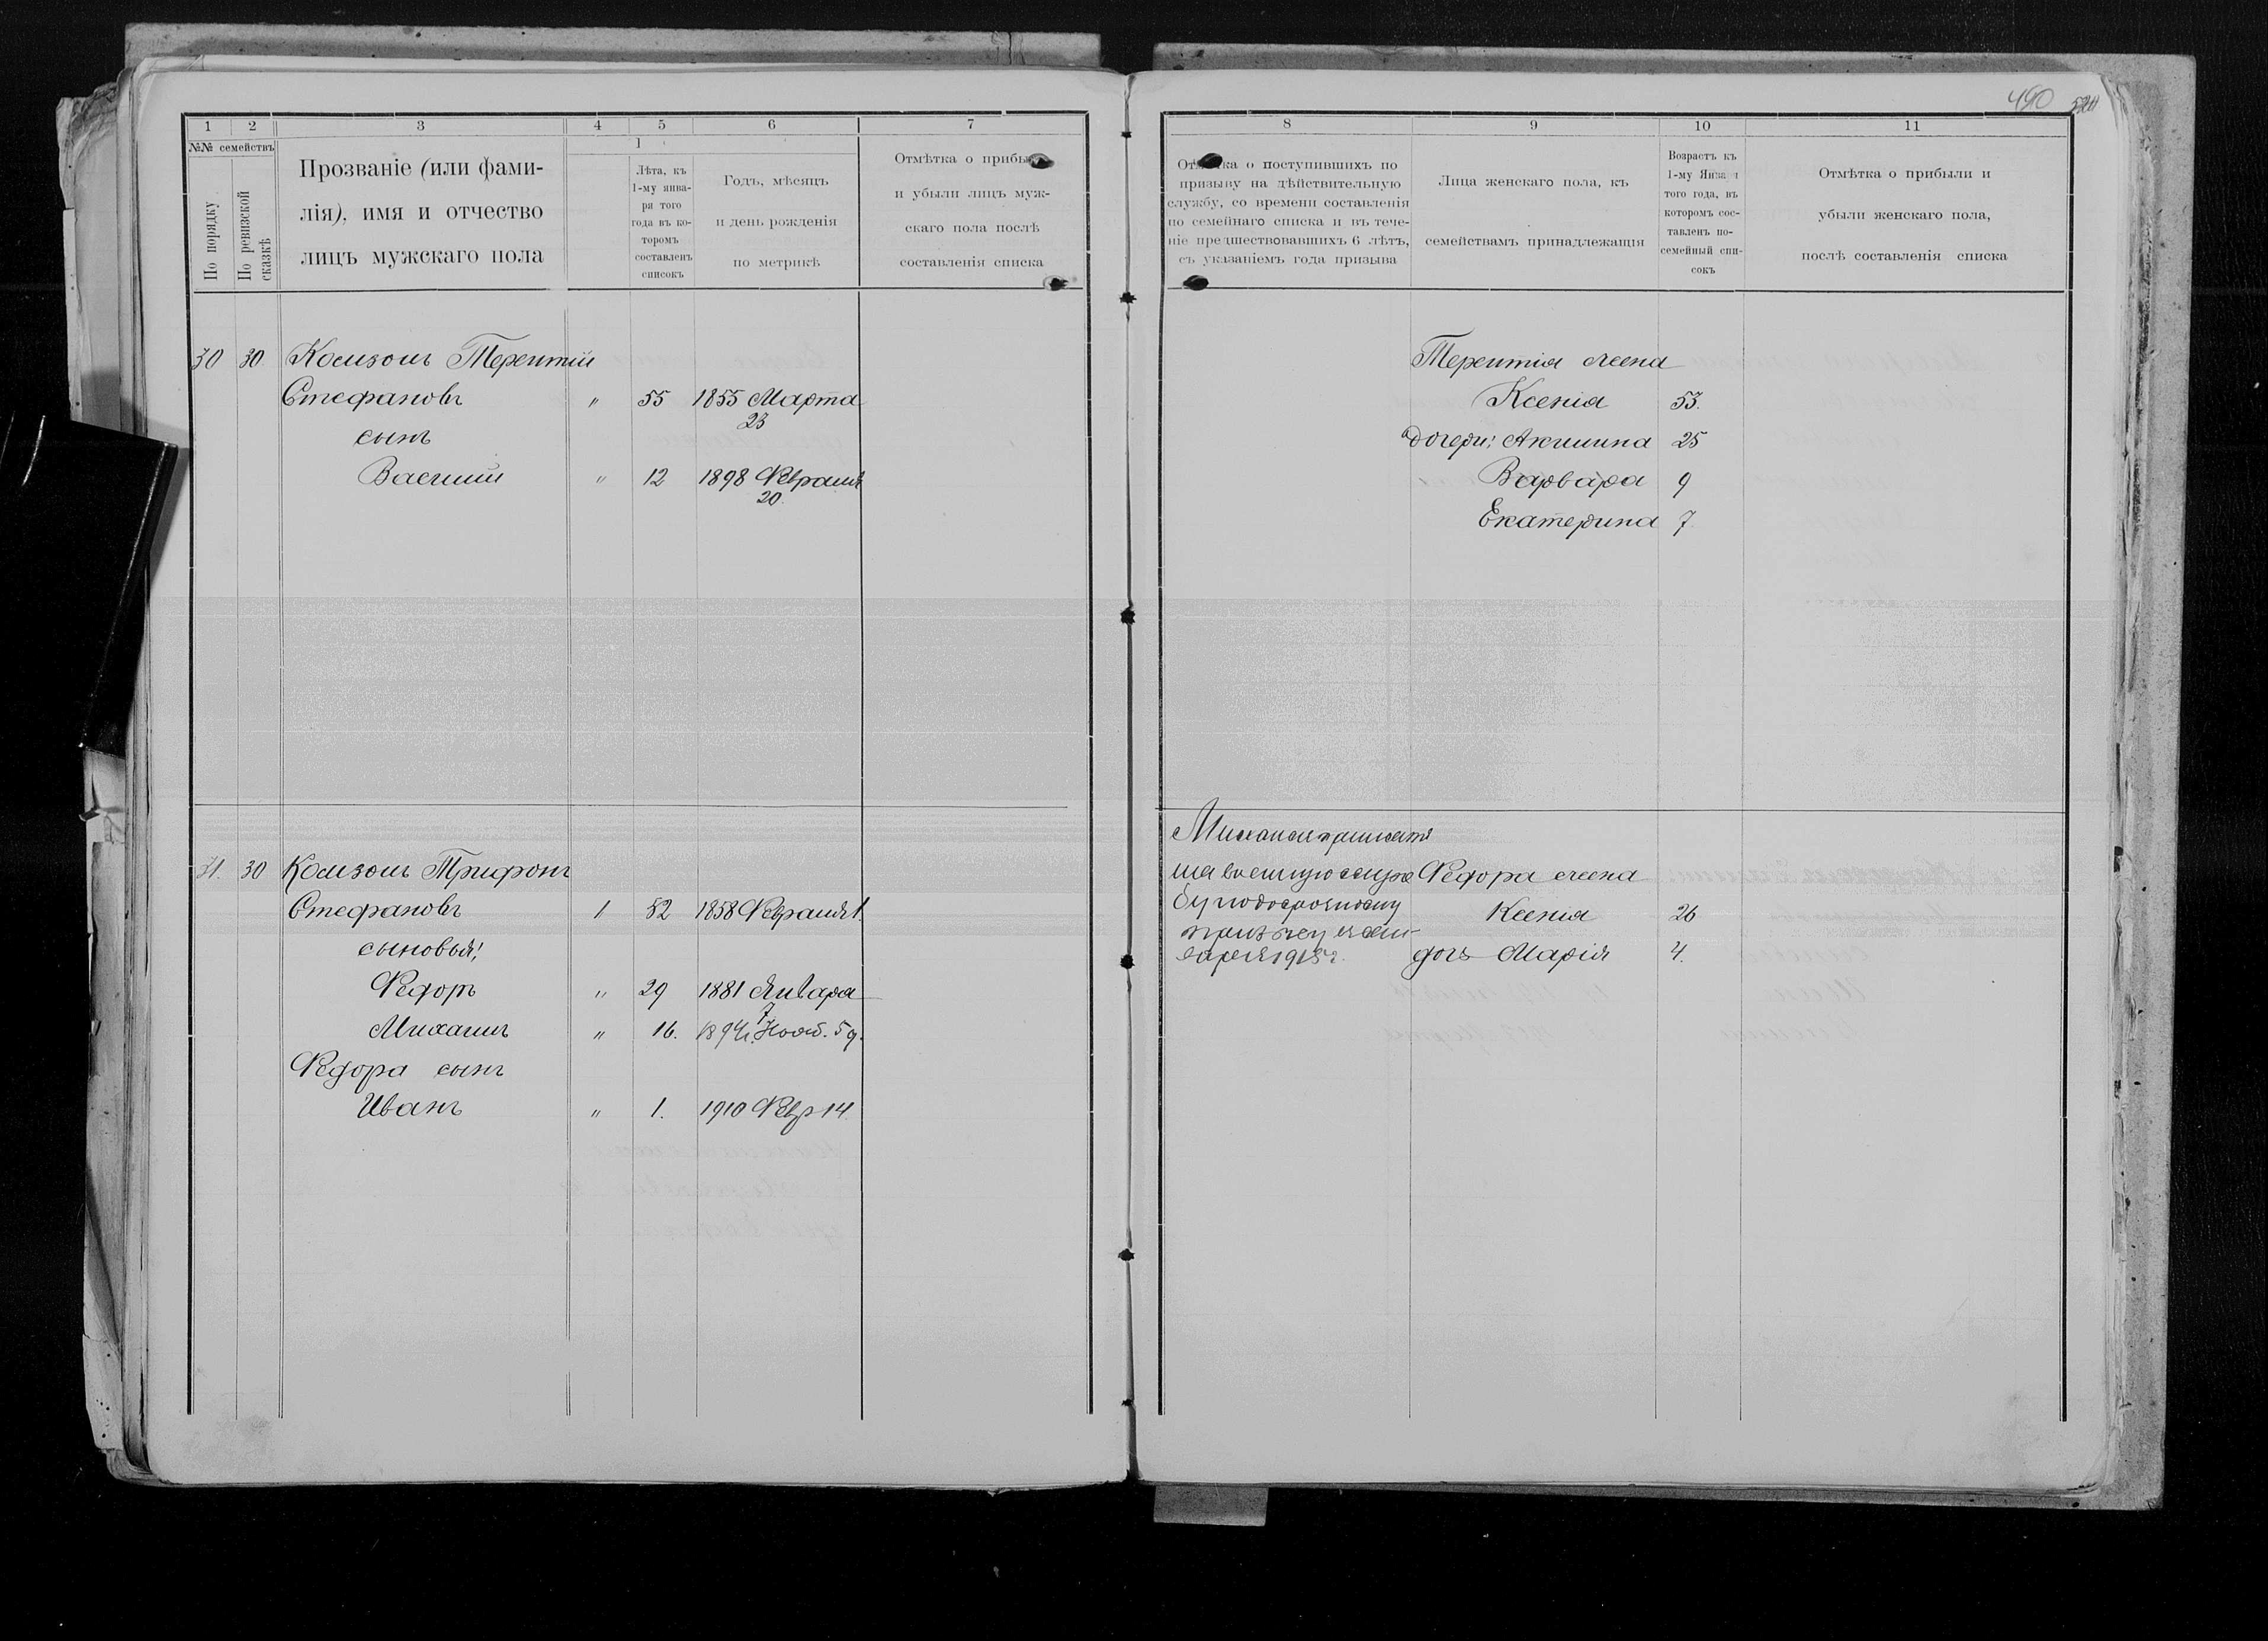 490 521
1 2 3 4 5 6 7
№№ семействъ
По порядку
По ревизской сказкѣ
Прозваніе (или фами-
лія), имя и отчество
лицъ мужскаго пола
1
Лѣта, къ
1-му янва-
ря того
года въ ко-
торомъ
составленъ
списокъ
Годъ, мѣсяцъ
и день рожденія
по метрикѣ
Отмѣтка о прибыли
и убыли лицъ муж-
скаго пола послѣ
составленія списка
30 30 Терентій
Стефановъ " 55 1855 Марта
23
сынъ
Василий " 12 1898 Февраля
20.
31. 30 Трифонъ
Стефановъ 1 52 1858 Февраля 1
сыновья:
Федоръ " 29 1881 Января
7
Михаилъ " 16. 1894 г. Нояб. 5 д.
Федора сынъ
Иванъ " 1. 1910 Февр 14.
8 9 10 11
Отмѣтка о поступившихъ по
призыву на дѣйствительную
службу, со времени составленія
по семейнаго списка и въ тече-
ніе предшествовавшихъ 6 лѣтъ,
съ указаніемъ года призыва
Лица женскаго пола, къ
семействамъ принадлежащія
Возрастъ къ
1-му Января
того года, въ
которомъ сос-
тавленъ по-
семейный спи-
сокъ
Отмѣтка о прибыли и
убыли женскаго пола,
послѣ составленія списка
Терентія жена
Ксенія 53.
дочери: Акилина 25
Варвара 9
Екатерина 7
Михаилъ
на военную служ Федора жена
бу по досрочному Ксенія 26
призыву
1915 г. дочь Марія 4.